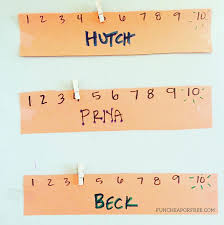 1 2 3 4 5 6 7 8 9 10
HUTCH
1 2 3 4 5 6 7 8 9 10
1 2 3 5 6 7 8 9 10
BECK
FUNCHEAPORFREE.COM